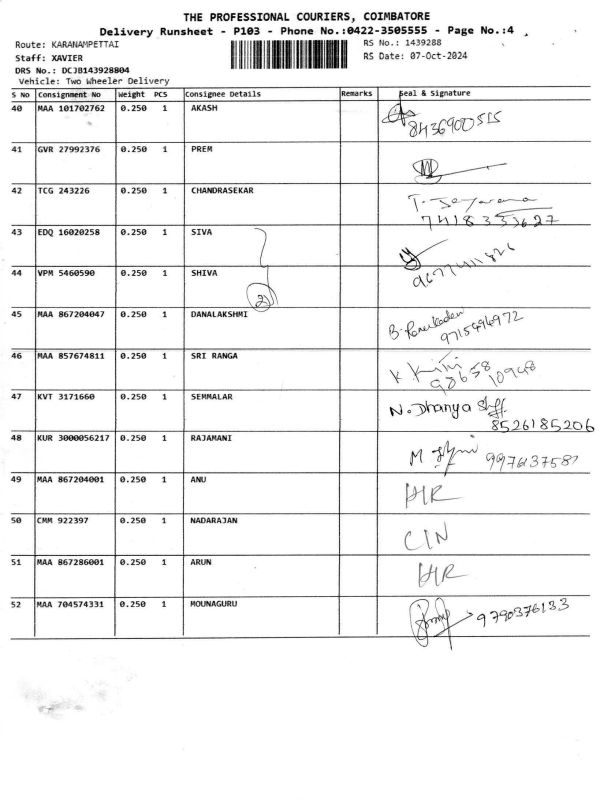 THE PROFESSIONAL COURIERS, COIMBATORE
Delivery Runsheet - P103 - Phone No.:0422-3505555 - Page No.:4
Route: KARANAMPETTAI RS No.: 1439288
Staff: XAVIER RS Date: 07-Oct-2024
DRS No.: DCJB143928804
Vehicle: Two Wheeler Delivery
S No Consignment No Weight PCS Consignee Details Remarks Seal & Signature
40 MAA 101702762 0.250 1 AKASH
8436900515
41 GVR 27992376 0.250 1 PREM
42 TCG 243226 0.250 1 CHANDRASEKAR
7418333627
43 EDQ 16020258 0.250 1 SIVA
44 VPM 5460590 0.250 1 SHIVA
2
45 MAA 867204047 0.250 1 DANALAKSHMI
9715496972
46 MAA 857674811 0.250 1 SRI RANGA
98658 10948
47 KVT 3171660 0.250 1 SEMMALAR N. Dhanya
8526185206
48 KUR 3000056217 0.250 1 RAJAMANI
49 MAA 867204001 0.250 1 ANU HR
50 CMM 922397 0.250 1 NADARAJAN CIN
51 MAA 867286001 0.250 1 ARUN HR
52 MAA 704574331 0.250 1 MOUNAGURU 9790376133